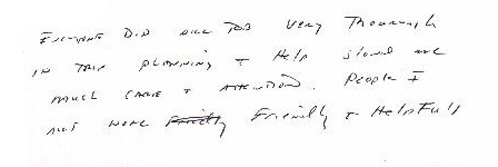 Everyone Did all JOB very Thorough
in trip planning + Help showed me
much care + attention. People I
met were Friendly + Helpfull